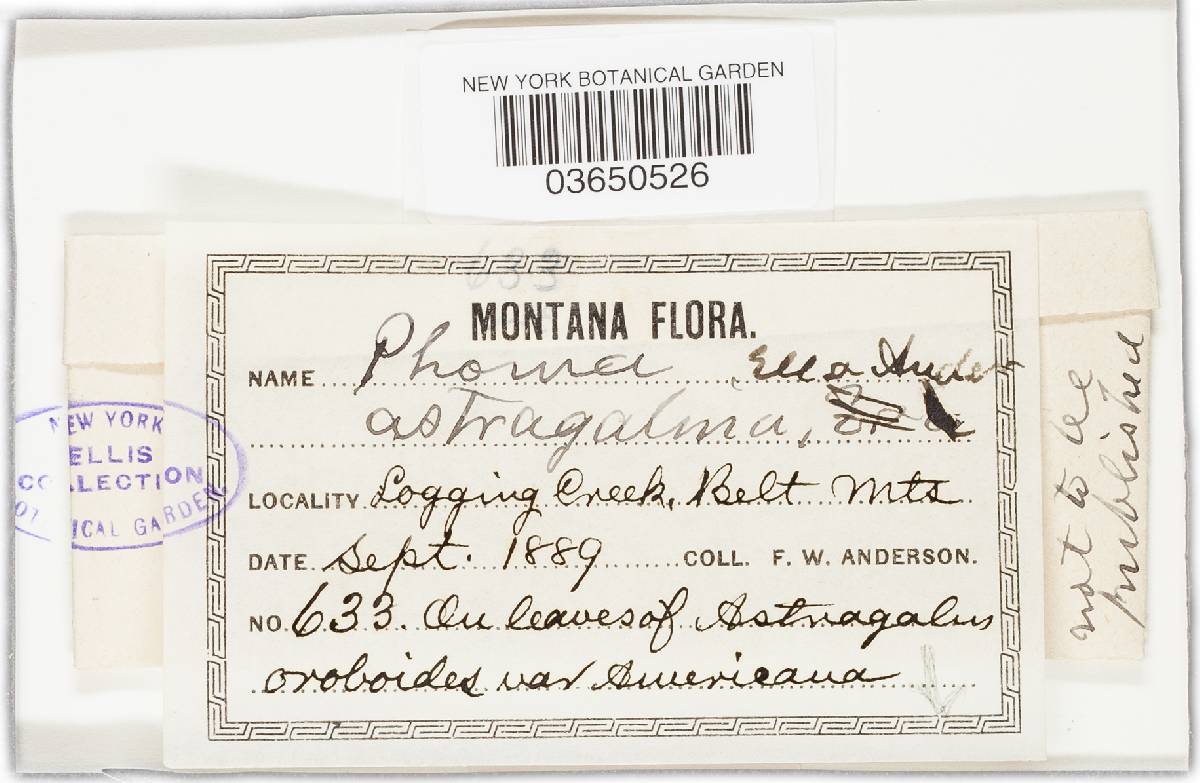 NEW YORK BOTANICAL GARDEN
03650526
633
MONTANA FLORA.
NAME Phoma Ell & Ander
astragalina,
LOCALITY Logging Creek, Belt Mts
DATE Sept. 1889 COLL. F. W. ANDERSON.
NO. 633. On leaves of Astragalus
oroboides var Americana
NEW YORK
ELLIS
COLLECTION
ICAL GARDEN
not to be
published